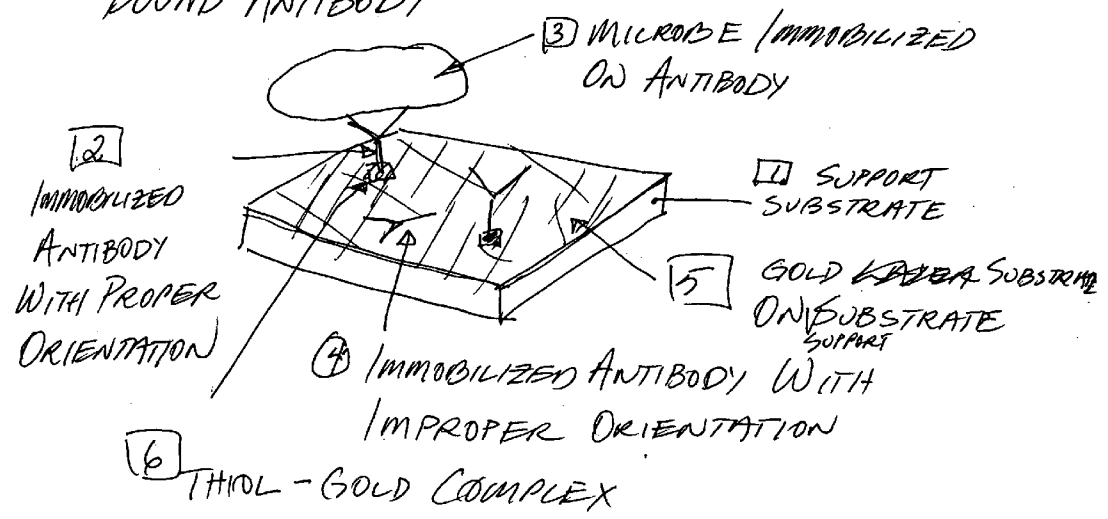 BOUND ANTIBODY
3 MICROBE IMMOBILIZED
ON ANTIBODY
2
IMMOBILIZED
ANTIBODY
WITH PROPER
ORIENTATION
1 SUPPORT
SUBSTRATE
5 GOLD SUBSTRATE
ON SUPPORT SUBSTRATE
4 IMMOBILIZED ANTIBODY WITH
IMPROPER ORIENTATION
6 THIOL-GOLD COMPLEX